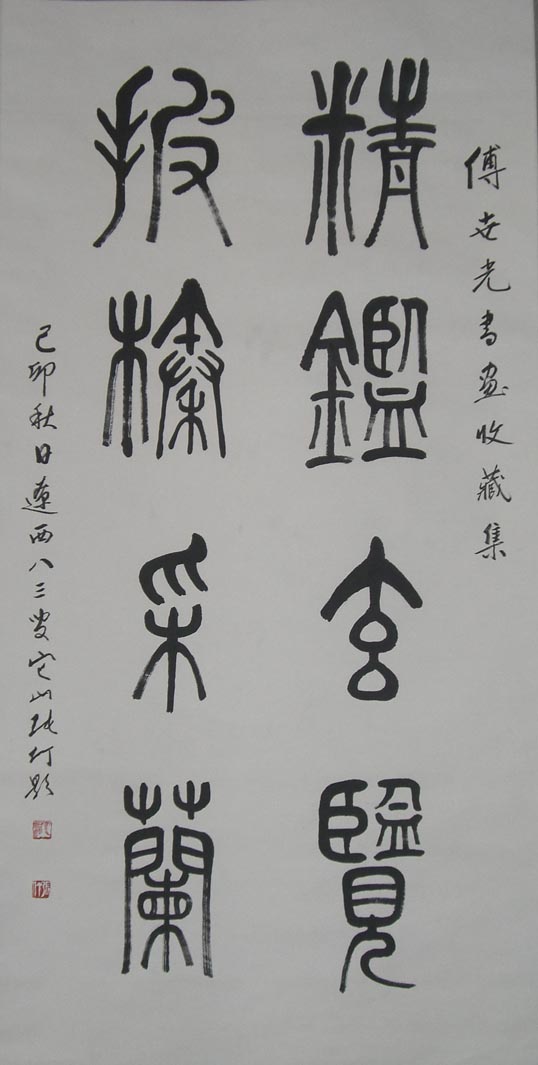 傅世光書畫收藏集
精鑑玄覽
披榛采蘭
己卯秋日遼西八三叟它山張仃題